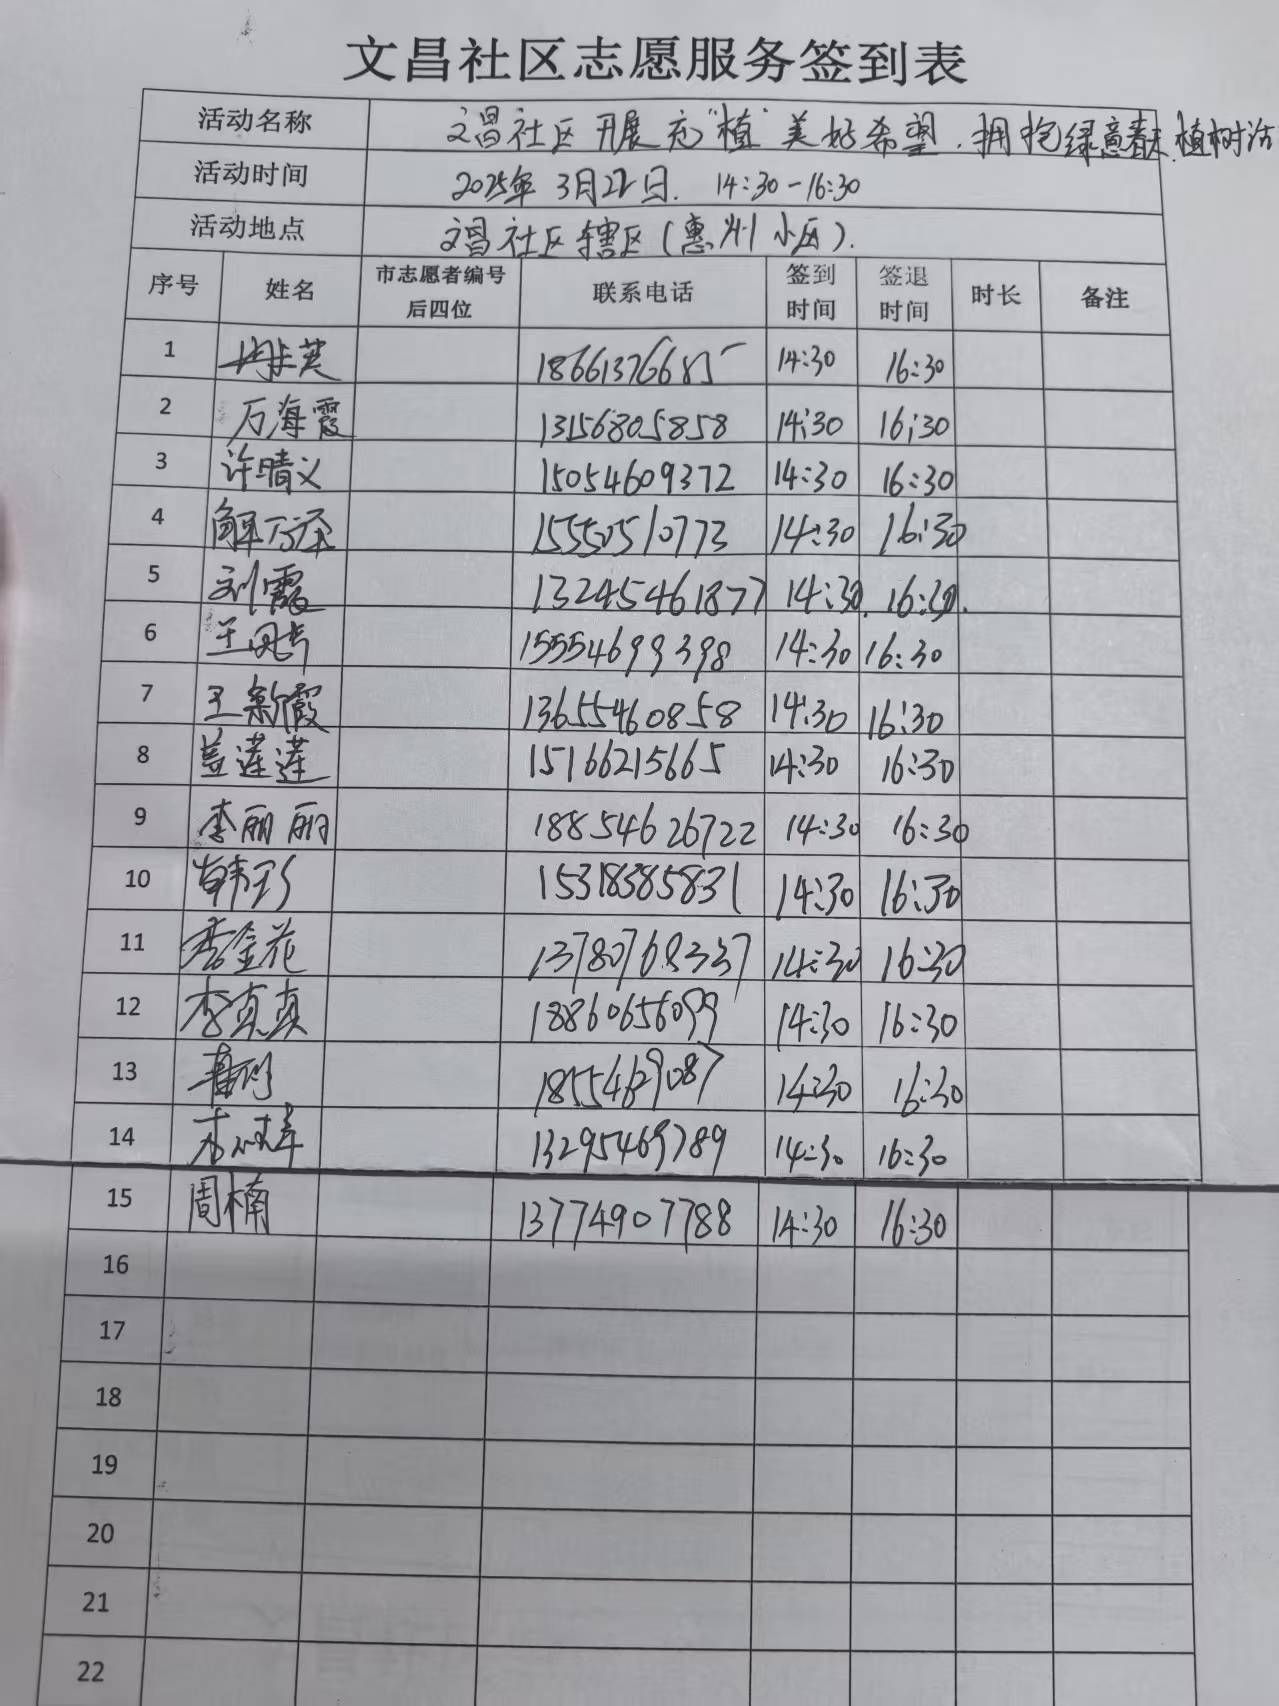 文昌社区志愿服务签到表
活动名称 文昌社区开展充"植"美好希望,拥抱绿意春天,植树活
活动时间 2025年3月22日. 14:30-16:30
活动地点 文昌社区辖区(惠州小区).
序号 姓名 市志愿者编号后四位 联系电话 签到时间 签退时间 时长 备注
1 18661376685 14:30 16:30
2 万海霞 13156805858 14:30 16:30
3 许晴义 15054609372 14:30 16:30
4 15550510773 14:30 16:30
5 刘霞 13245461877 14:30. 16:30.
6 15554699398 14:30 16:30
7 王新霞 13655460858 14:30 16:30
8 盖莲莲 15166215665 14:30 16:30
9 李丽丽 18854626722 14:30 16:30
10 韩珍 15318385831 14:30 16:30
11 李金花 13780768337 14:30 16:30
12 李真真 18860656099 14:30 16:30
13 14:30 16:30
14 13295469789 14:30 16:30
15 周楠 13774907788 14:30 16:30
16
17
18
19
20
21
22